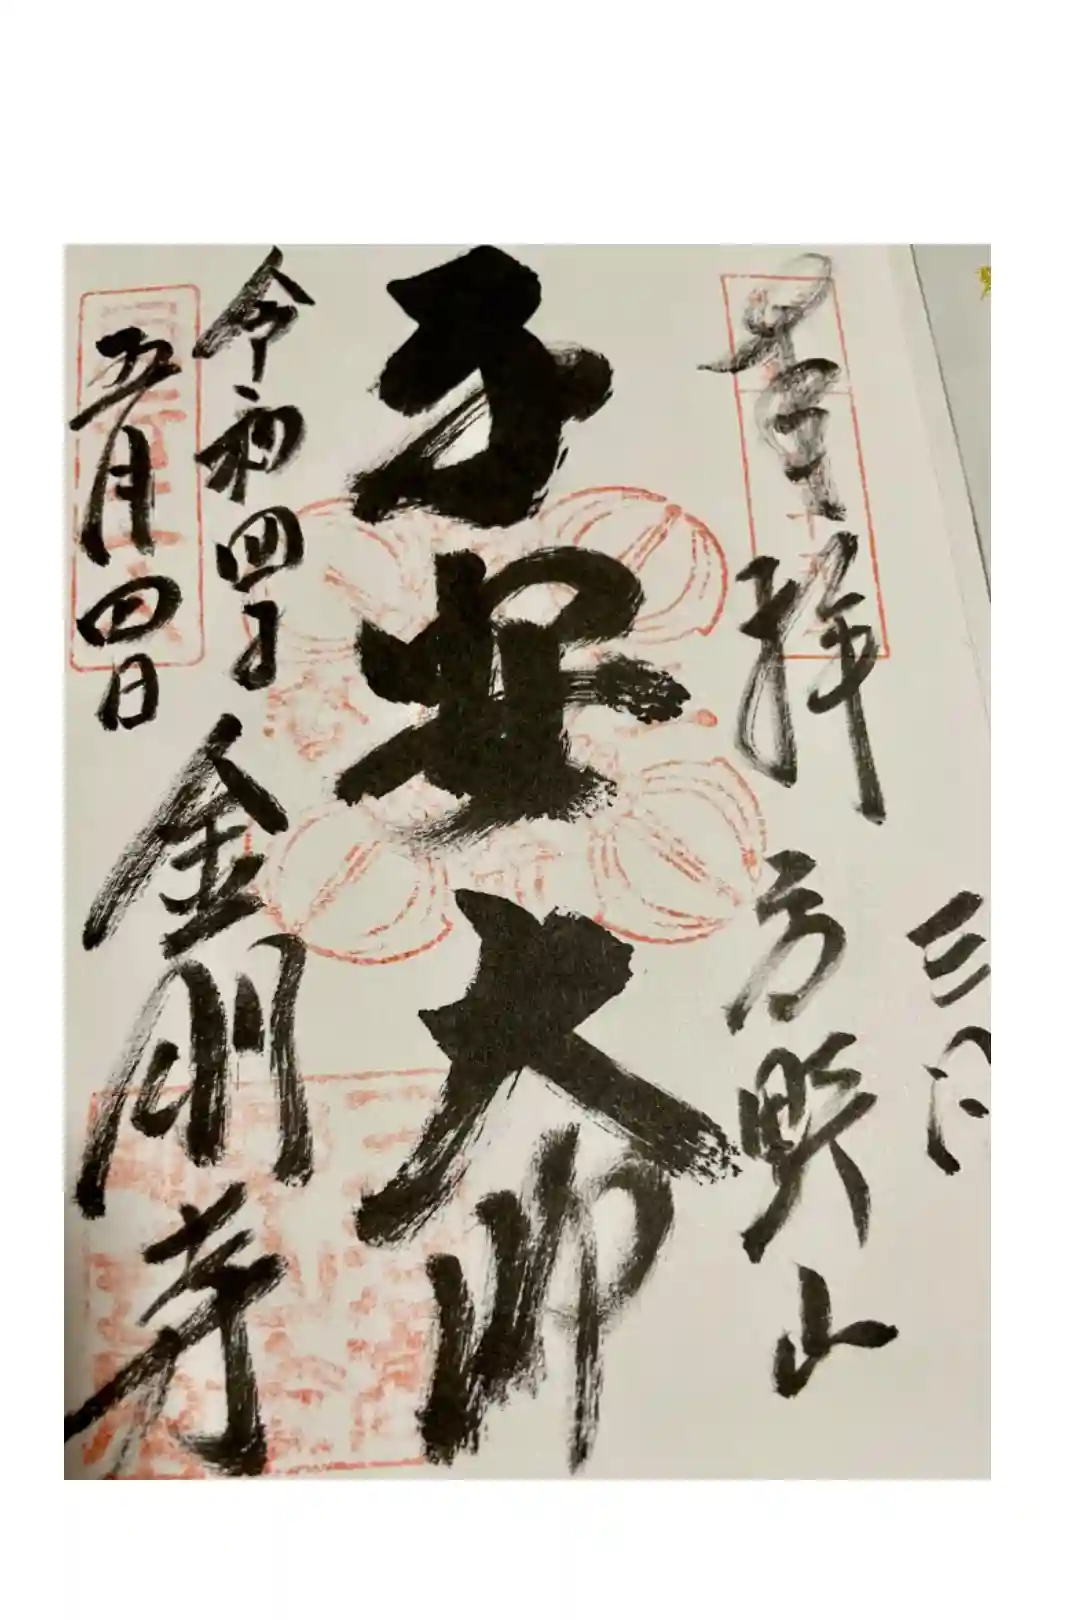 奉拝 高野山
子安大師
令和四年
五月四日
金剛寺